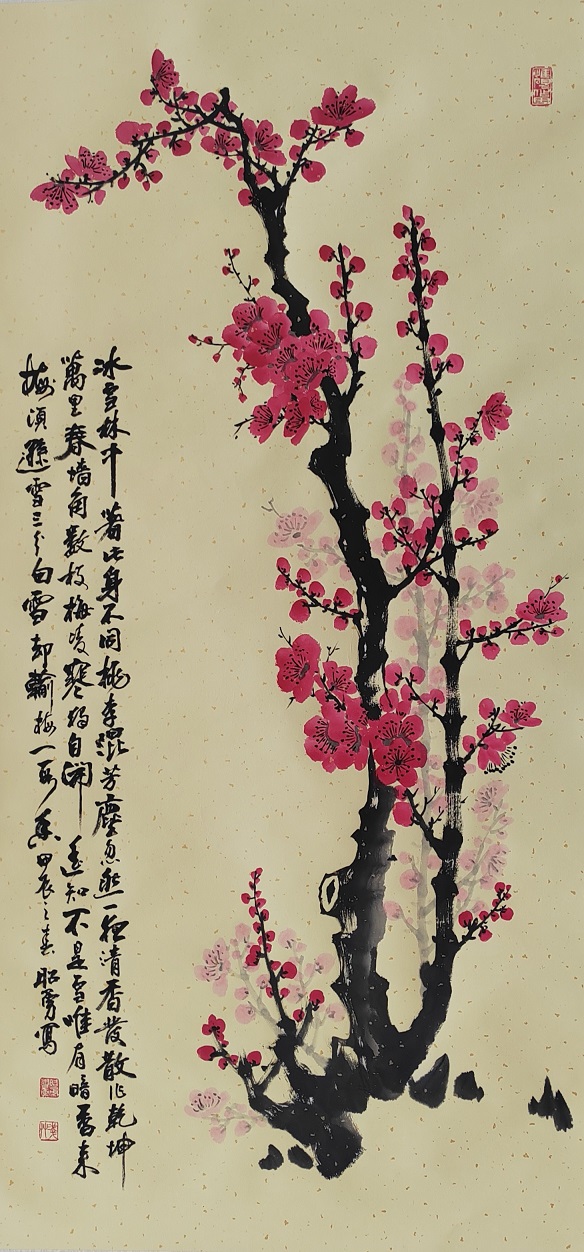 冰雪林中著此身不同桃李混芳塵忽然一夜清香發散作乾坤
萬里春墻角數枝梅凌寒獨自開遙知不是雪唯有暗香來
梅須遜雪三分白雪却輸梅一段香甲辰之春昭勇寫